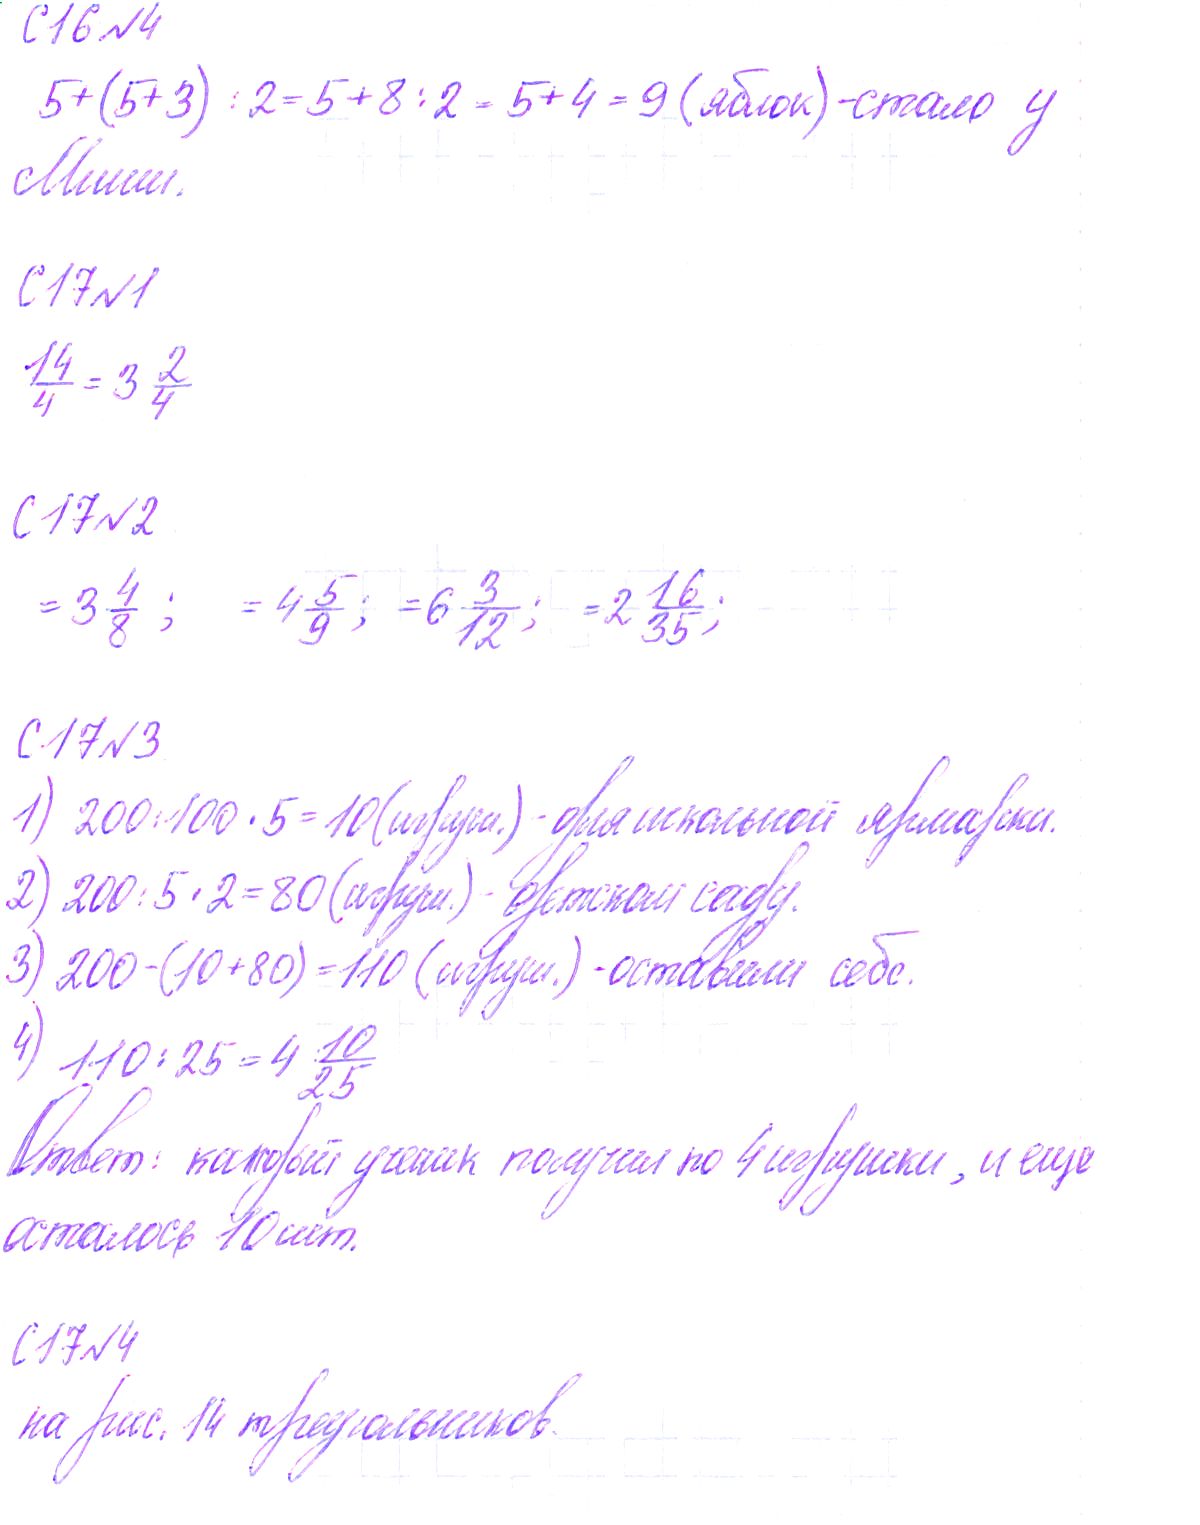 С16 №4
5+(5+3) : 2 = 5+8 : 2 = 5+4 = 9 (яблок) - стало у
Миши.
С17 №1
14/4 = 3 2/4
С17 №2
= 3 4/8 ; = 4 5/9 ; = 6 3/12 ; = 2 16/35 ;
С17 №3
1) 200 : 100 · 5 = 10 (игруш.) - для школьной ярмарки.
2) 200 : 5 · 2 = 80 (игруш.) - детском саду.
3) 200 - (10+80) = 110 (игруш.) - оставили себе.
4) 110 : 25 = 4 10/25
Ответ: каждый ученик получил по 4 игрушки, и еще
осталось 10 шт.
С17 №4
на рис. 14 треугольников.